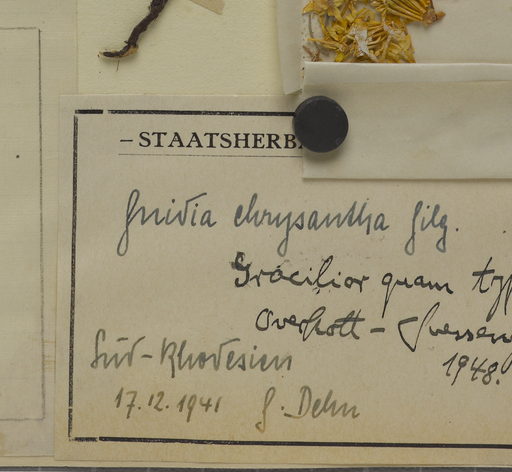 – STAATSHERBA
Gnidia chrysantha Gilg.
Gracilior quam typ
Overkott –
1948.
Süd-Rhodesien
17.12.1941 G. Dehn